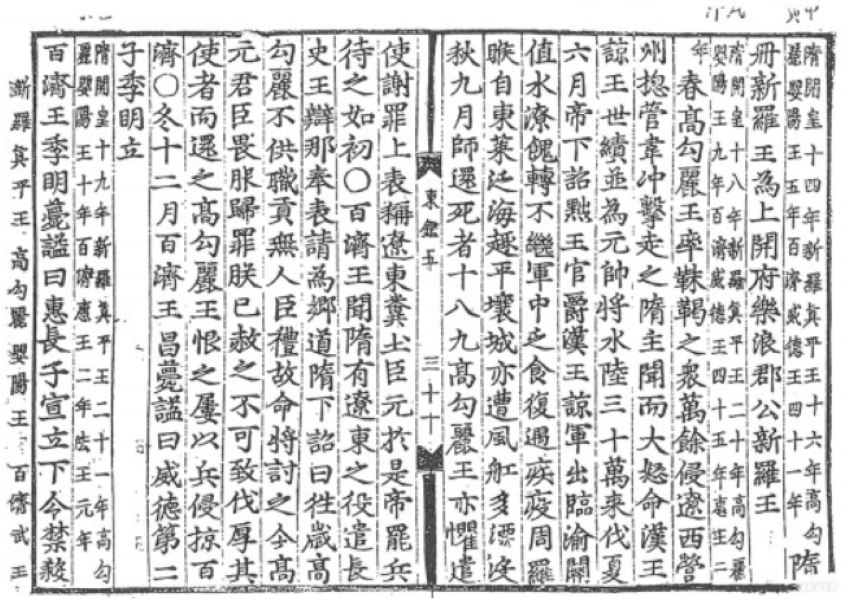 隋開皇十四年新羅真平王十六年高勾
麗嬰陽王五年百濟威德王四十一年
隋
冊新羅王為上開府樂浪郡公新羅王
隋開皇十八年新羅真平王二十年高勾麗
嬰陽王九年百濟威德王四十五年惠王二
年
春高勾麗王率靺鞨之衆萬餘侵遼西營
州揔管韋冲擊走之隋主聞而大怒命漢王
諒王世績並為元帥將水陸三十萬来伐夏
六月帝下詔黜王官爵漢王諒軍出臨渝關
值水潦餽轉不繼軍中乏食復遇疾疫周羅
睺自東萊泛海趣平壤城亦遭風舡多漂沒
秋九月師還死者十八九高勾麗王亦懼遣
東鑑五
三十十
使謝罪上表稱遼東糞土臣元於是帝罷兵
待之如初○百濟王聞隋有遼東之役遣長
史王辯那奉表請為鄉道隋下詔曰往歲高
勾麗不供職貢無人臣禮故命將討之今高
元君臣畏服歸罪朕已赦之不可致伐厚其
使者而還之高勾麗王恨之屢以兵侵掠百
濟○冬十二月百濟王昌薨謚曰威德第二
子季明立
隋開皇十九年新羅真平王二十一年高勾
麗嬰陽王十年百濟惠王二年法王元年
百濟王季明薨謚曰惠長子宣立下令禁殺
新羅真平王 高勾麗嬰陽王 百濟武王